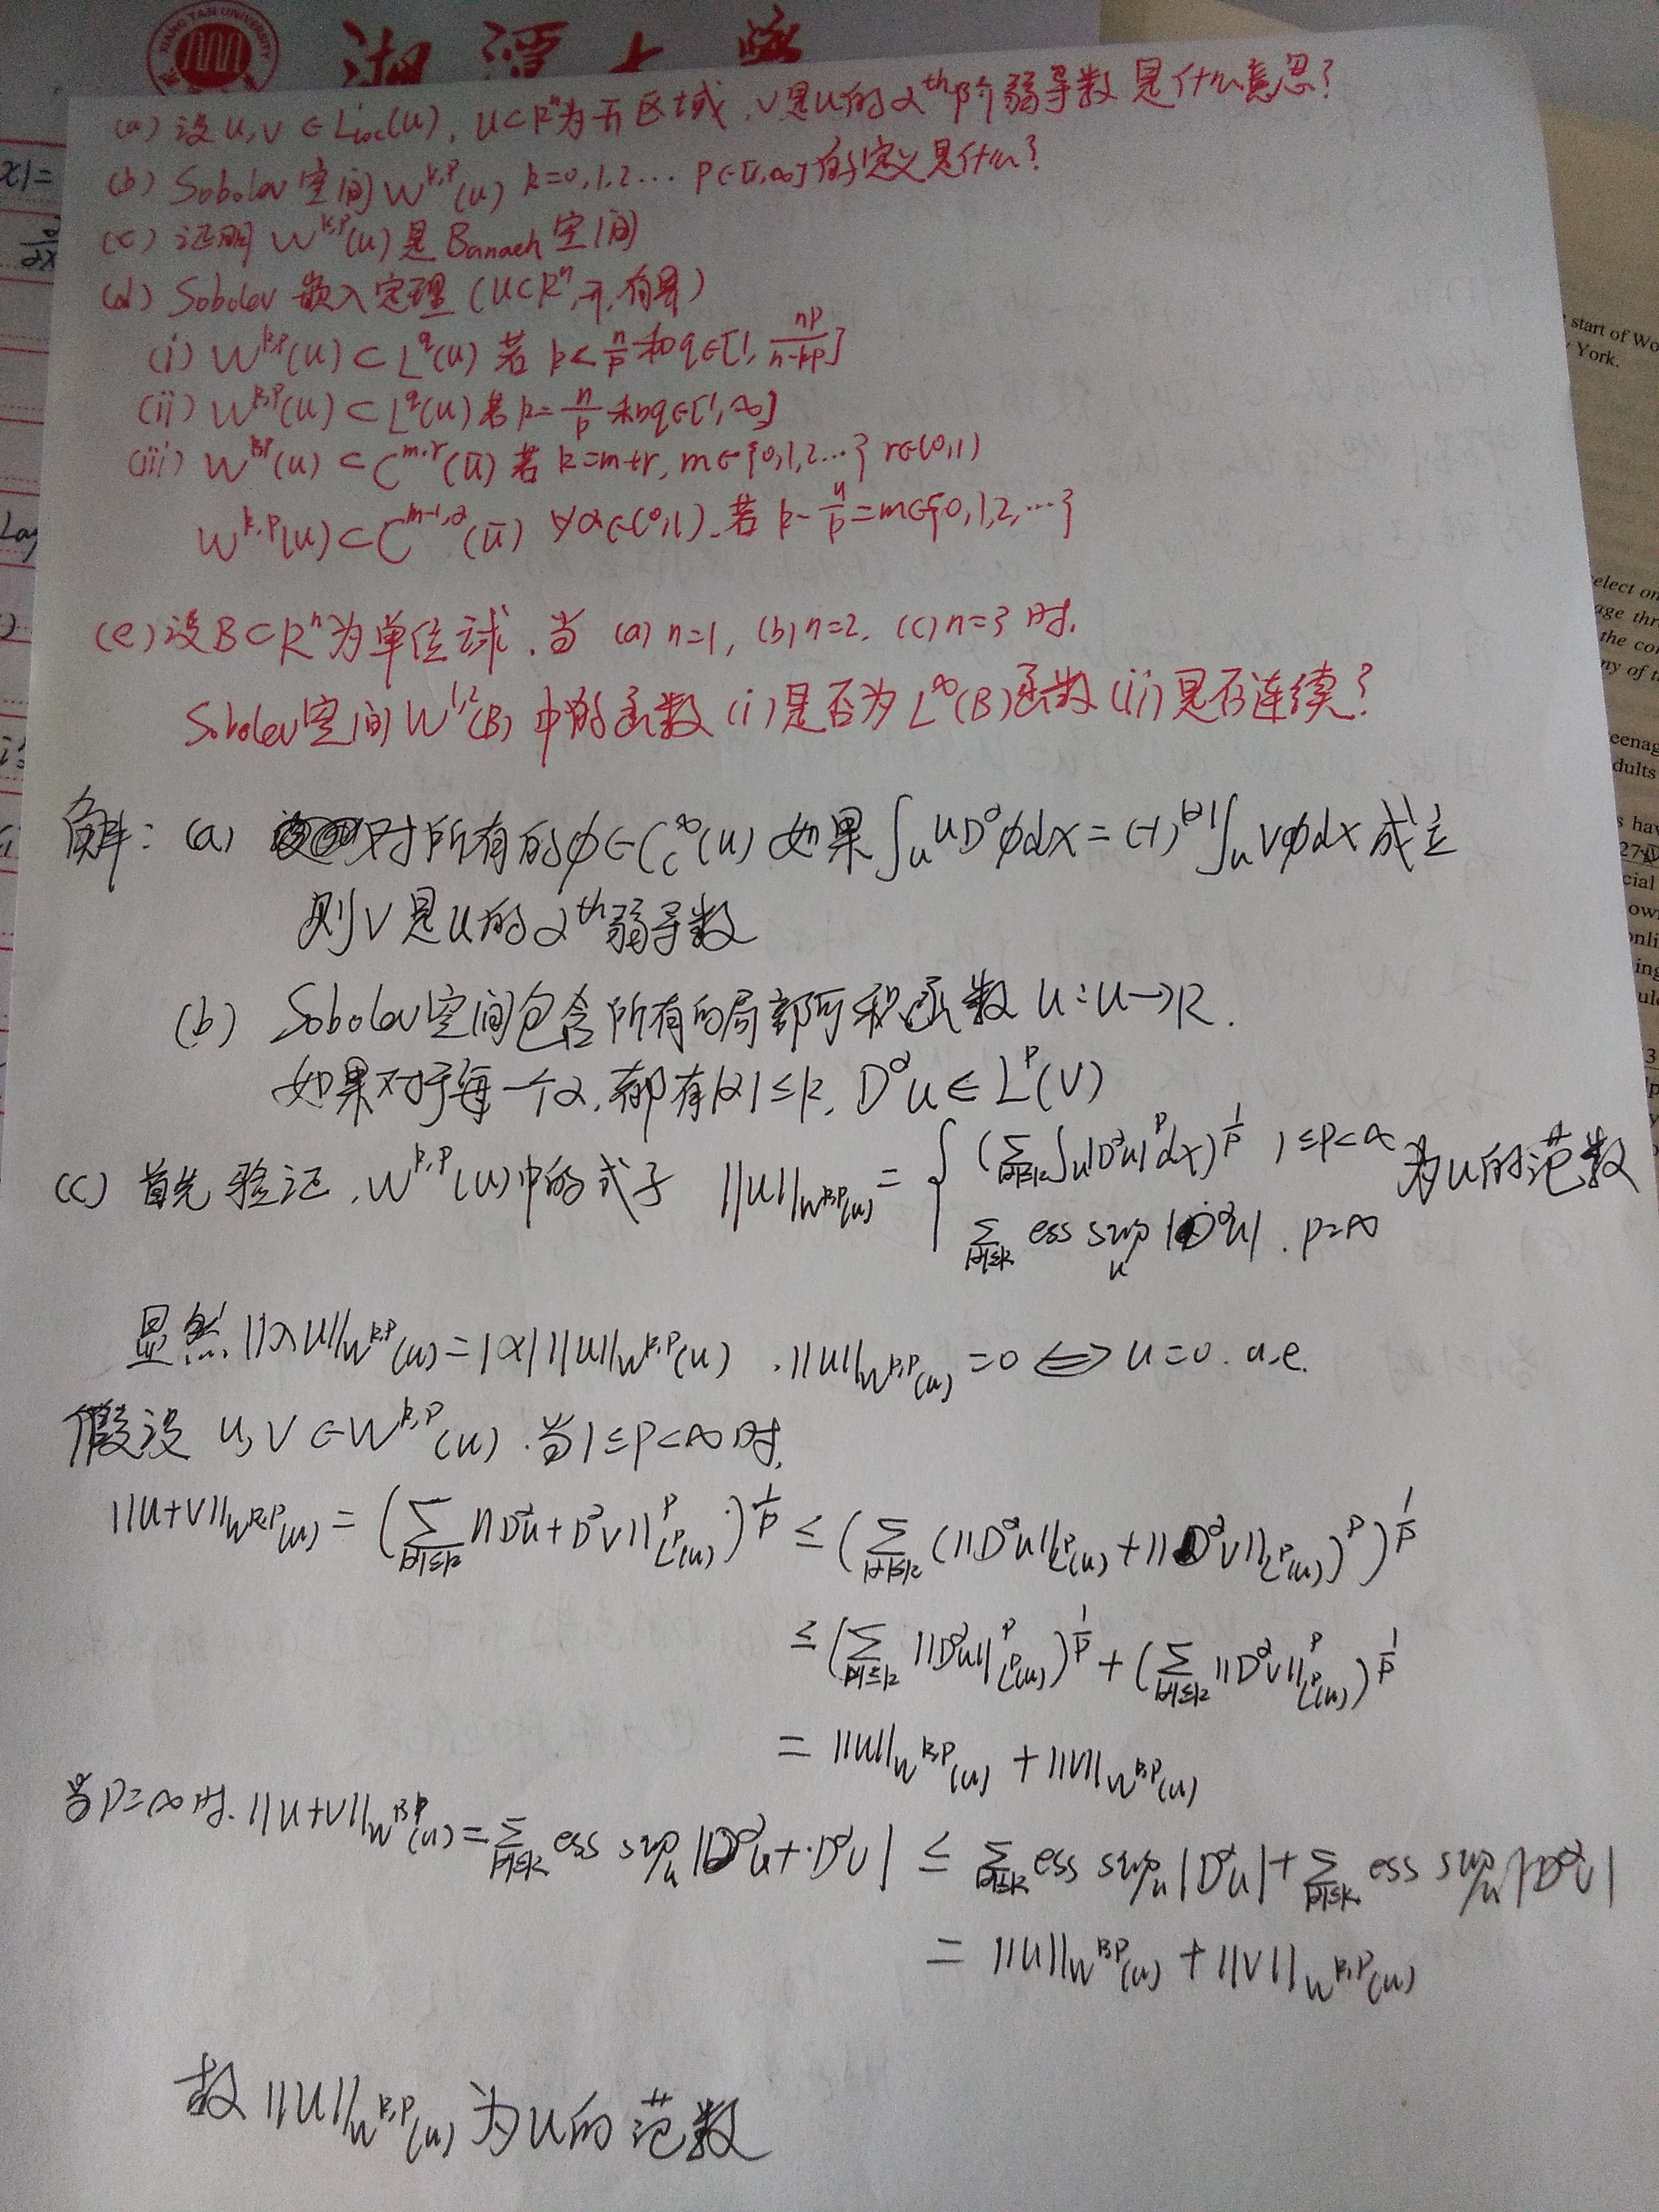 XIANG TAN UNIVERSITY
湘潭大学
(a) 设 u, v ∈ L_loc(U), U⊂R^n为开区域, v是u的α^th阶弱导数是什么意思?
(b) Sobolev空间W^{k,p}(U) k=0,1,2… p∈[1,∞]的定义是什么?
(c) 证明 W^{k,p}(U)是Banach空间
(d) Sobolev 嵌入定理 (U⊂R^n, 开, 有界)
(i) W^{k,p}(U)⊂L^q(U) 若 k<n/p 和q∈[1, np/(n-kp)]
(ii) W^{k,p}(U)⊂L^q(U) 若 k=n/p 和q∈[1,∞]
(iii) W^{k,p}(U)⊂C^{m,r}(Ū) 若 k=m+r, m∈{0,1,2…} r∈(0,1)
W^{k,p}(U)⊂C^{m-1,α}(Ū) ∀α∈(0,1). 若 k-n/p=m∈{0,1,2,…}
(e) 设B⊂R^n为单位球. 当 (a) n=1, (b) n=2, (c) n=3 时.
Sobolev空间W^{1,2}(B) 中的函数 (i) 是否为 L^∞(B)函数 (ii) 是否连续?
解: (a) 对所有的φ∈C_c^∞(U) 如果 ∫_U uD^αφdx=(-1)^{|α|}∫_U vφdx 成立
则 v 是u的α^th弱导数
(b) Sobolev空间包含所有的局部可积函数 u:U→R.
如果对于每一个α, 都有|α|≤k, D^αu∈L^p(V)
(c) 首先验证, W^{k,p}(U)中的式子 ||u||_{W^{k,p}(U)} = { (∑_{|α|≤k}∫_U|D^αu|^p dx)^{1/p} 1≤p<∞ 为u的范数
∑_{|α|≤k} ess sup_U |D^αu|. p=∞
显然, ||λu||_{W^{k,p}(U)}=|λ| ||u||_{W^{k,p}(U)}, ||u||_{W^{k,p}(U)}=0 ⟺ u=0. a.e.
假设 u, v∈W^{k,p}(U). 当1≤p<∞时,
||u+v||_{W^{k,p}(U)} = (∑_{|α|≤k}||D^αu+D^αv||^p_{L^p(U)})^{1/p} ≤ (∑_{|α|≤k}(||D^αu||_{L^p(U)}+||D^αv||_{L^p(U)})^p)^{1/p}
≤ (∑_{|α|≤k}||D^αu||^p_{L^p(U)})^{1/p} + (∑_{|α|≤k}||D^αv||^p_{L^p(U)})^{1/p}
= ||u||_{W^{k,p}(U)} + ||v||_{W^{k,p}(U)}
当p=∞时. ||u+v||_{W^{k,p}(U)}=∑_{|α|≤k} ess sup_U |D^αu+D^αv| ≤ ∑_{|α|≤k} ess sup_U |D^αu|+∑_{|α|≤k} ess sup_U |D^αv|
= ||u||_{W^{k,p}(U)} + ||v||_{W^{k,p}(U)}
故 ||u||_{W^{k,p}(U)} 为u的范数
start of Wo
York.